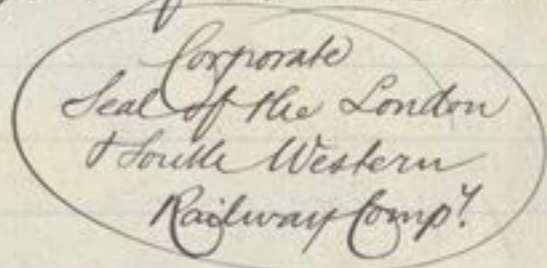 Corporate
Seal of the London
& South Western
Railway Compy.